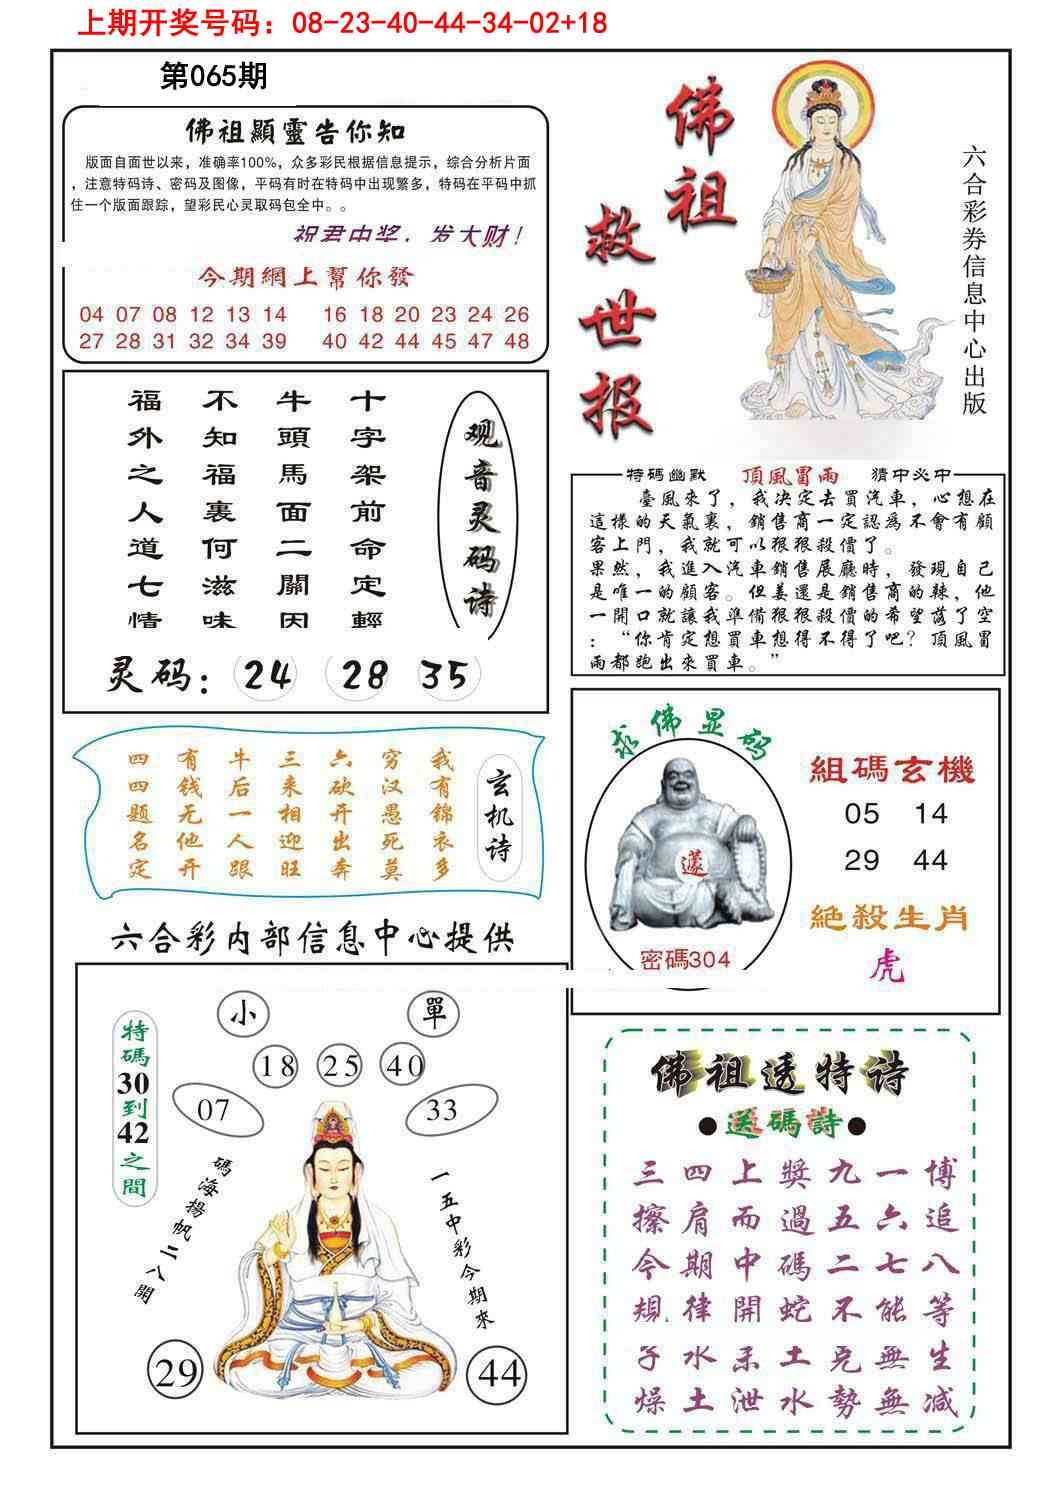 上期开奖号码：08-23-40-44-34-02+18
第065期
佛祖顯靈告你知
版面自面世以来，准确率100%，众多彩民根据信息提示，综合分析片面
，注意特码诗、密码及图像，平码有时在特码中出现繁多，特码在平码中抓
住一个版面跟踪，望彩民心灵取码包全中。。
祝君中奖，发大财！
今期網上幫你發
04 07 08 12 13 14 16 18 20 23 24 26
27 28 31 32 34 39 40 42 44 45 47 48
佛祖
救世报
六合彩券信息中心出版
观音灵码诗
十字架前命定輕
牛頭馬面二關因
不知福裏何滋味
福外之人道七情
灵码：24 28 35
特码幽默 頂風冒雨 猜中必中
臺風來了，我决定去買汽車，心想在
這樣的天氣裏，銷售商一定認爲不會有顧
客上門，我就可以狠狠殺價了。
果然，我進入汽車銷售展廳時，發現自己
是唯一的顧客。但姜還是銷售商的辣，他
一開口就讓我準備狠狠殺價的希望落了空
：“你肯定想買車想得不得了吧？頂風冒
雨都跑出來買車。”
玄机诗
我有锦衣多
穷汉愚死莫
六砍开出奔
三来相迎旺
牛后一人跟
有钱无他开
四四题名定
求佛显码
密碼304
組碼玄機
05 14
29 44
絕殺生肖
虎
六合彩内部信息中心提供
特碼30到42之間
小 單
18 25 40
07 33
碼海揚帆二八開
一五中彩今期來
29 44
佛祖透特诗
●送碼詩●
三四上獎九一博
擦肩而過五六追
今期中碼二七八
規律開蛇不能等
子水禾土克無生
燥土泄水勢無减